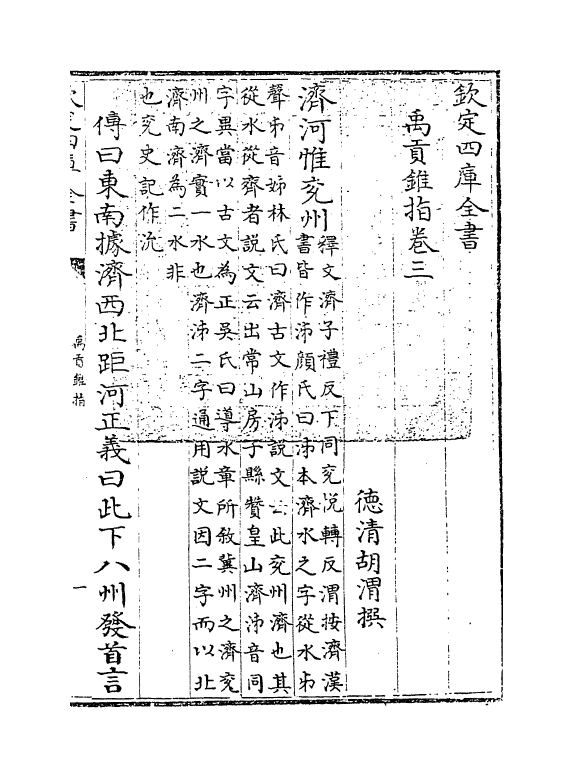 欽定四庫全書
禹貢錐指卷三
德清胡渭撰
濟河惟兖州釋文濟子禮反下同兖悦轉反渭按濟漢
書皆作泲顔氏曰泲本濟水之字從水𠂔
聲𠂔音姊林氏曰濟古文作泲説文云此兖州濟也其
從水從齊者説文云出常山房子縣贊皇山濟泲音同
字異當以古文為正吳氏曰導水章所敘冀州之濟兖
州之濟實一水也濟泲二字通用説文因二字而以北
濟南濟為二水非
也兖史記作沇
傳曰東南據濟西北距河正義曰此下八州發首言
欽定四庫全書
禹貢錐指
一